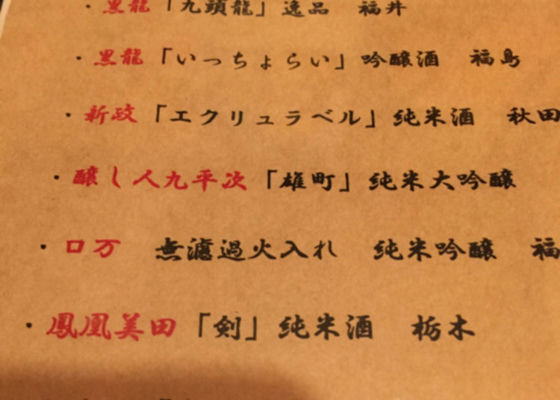 ・黒龍「九頭龍」逸品 福井
・黒龍「いっちょらい」吟醸酒 福島
・新政「エクリュラベル」純米酒 秋田
・醸し人九平次「雄町」純米大吟醸
・口万 無濾過火入れ 純米吟醸 福
・鳳凰美田「剣」純米酒 栃木